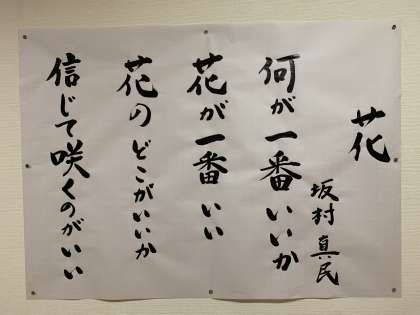 花
坂村真民
何が一番いいか
花が一番いい
花のどこがいいか
信じて咲くのがいい